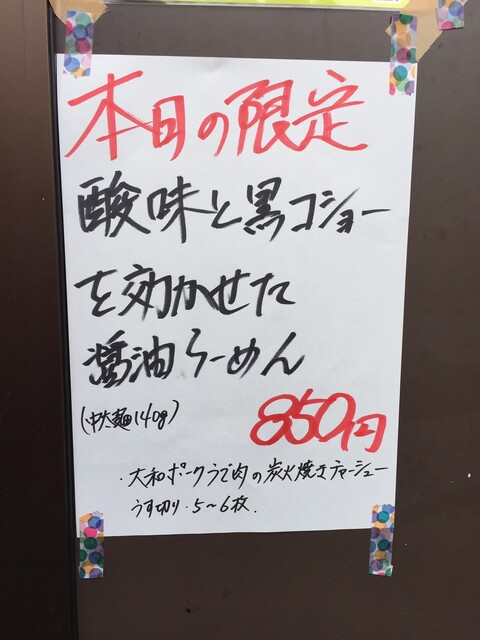 本日の限定
酸味と黒コショー
を効かせた
醤油らーめん
(中太麺140g)
850円
・大和ポークうで肉の炭火焼きチャーシュー
うす切り・5〜6枚.